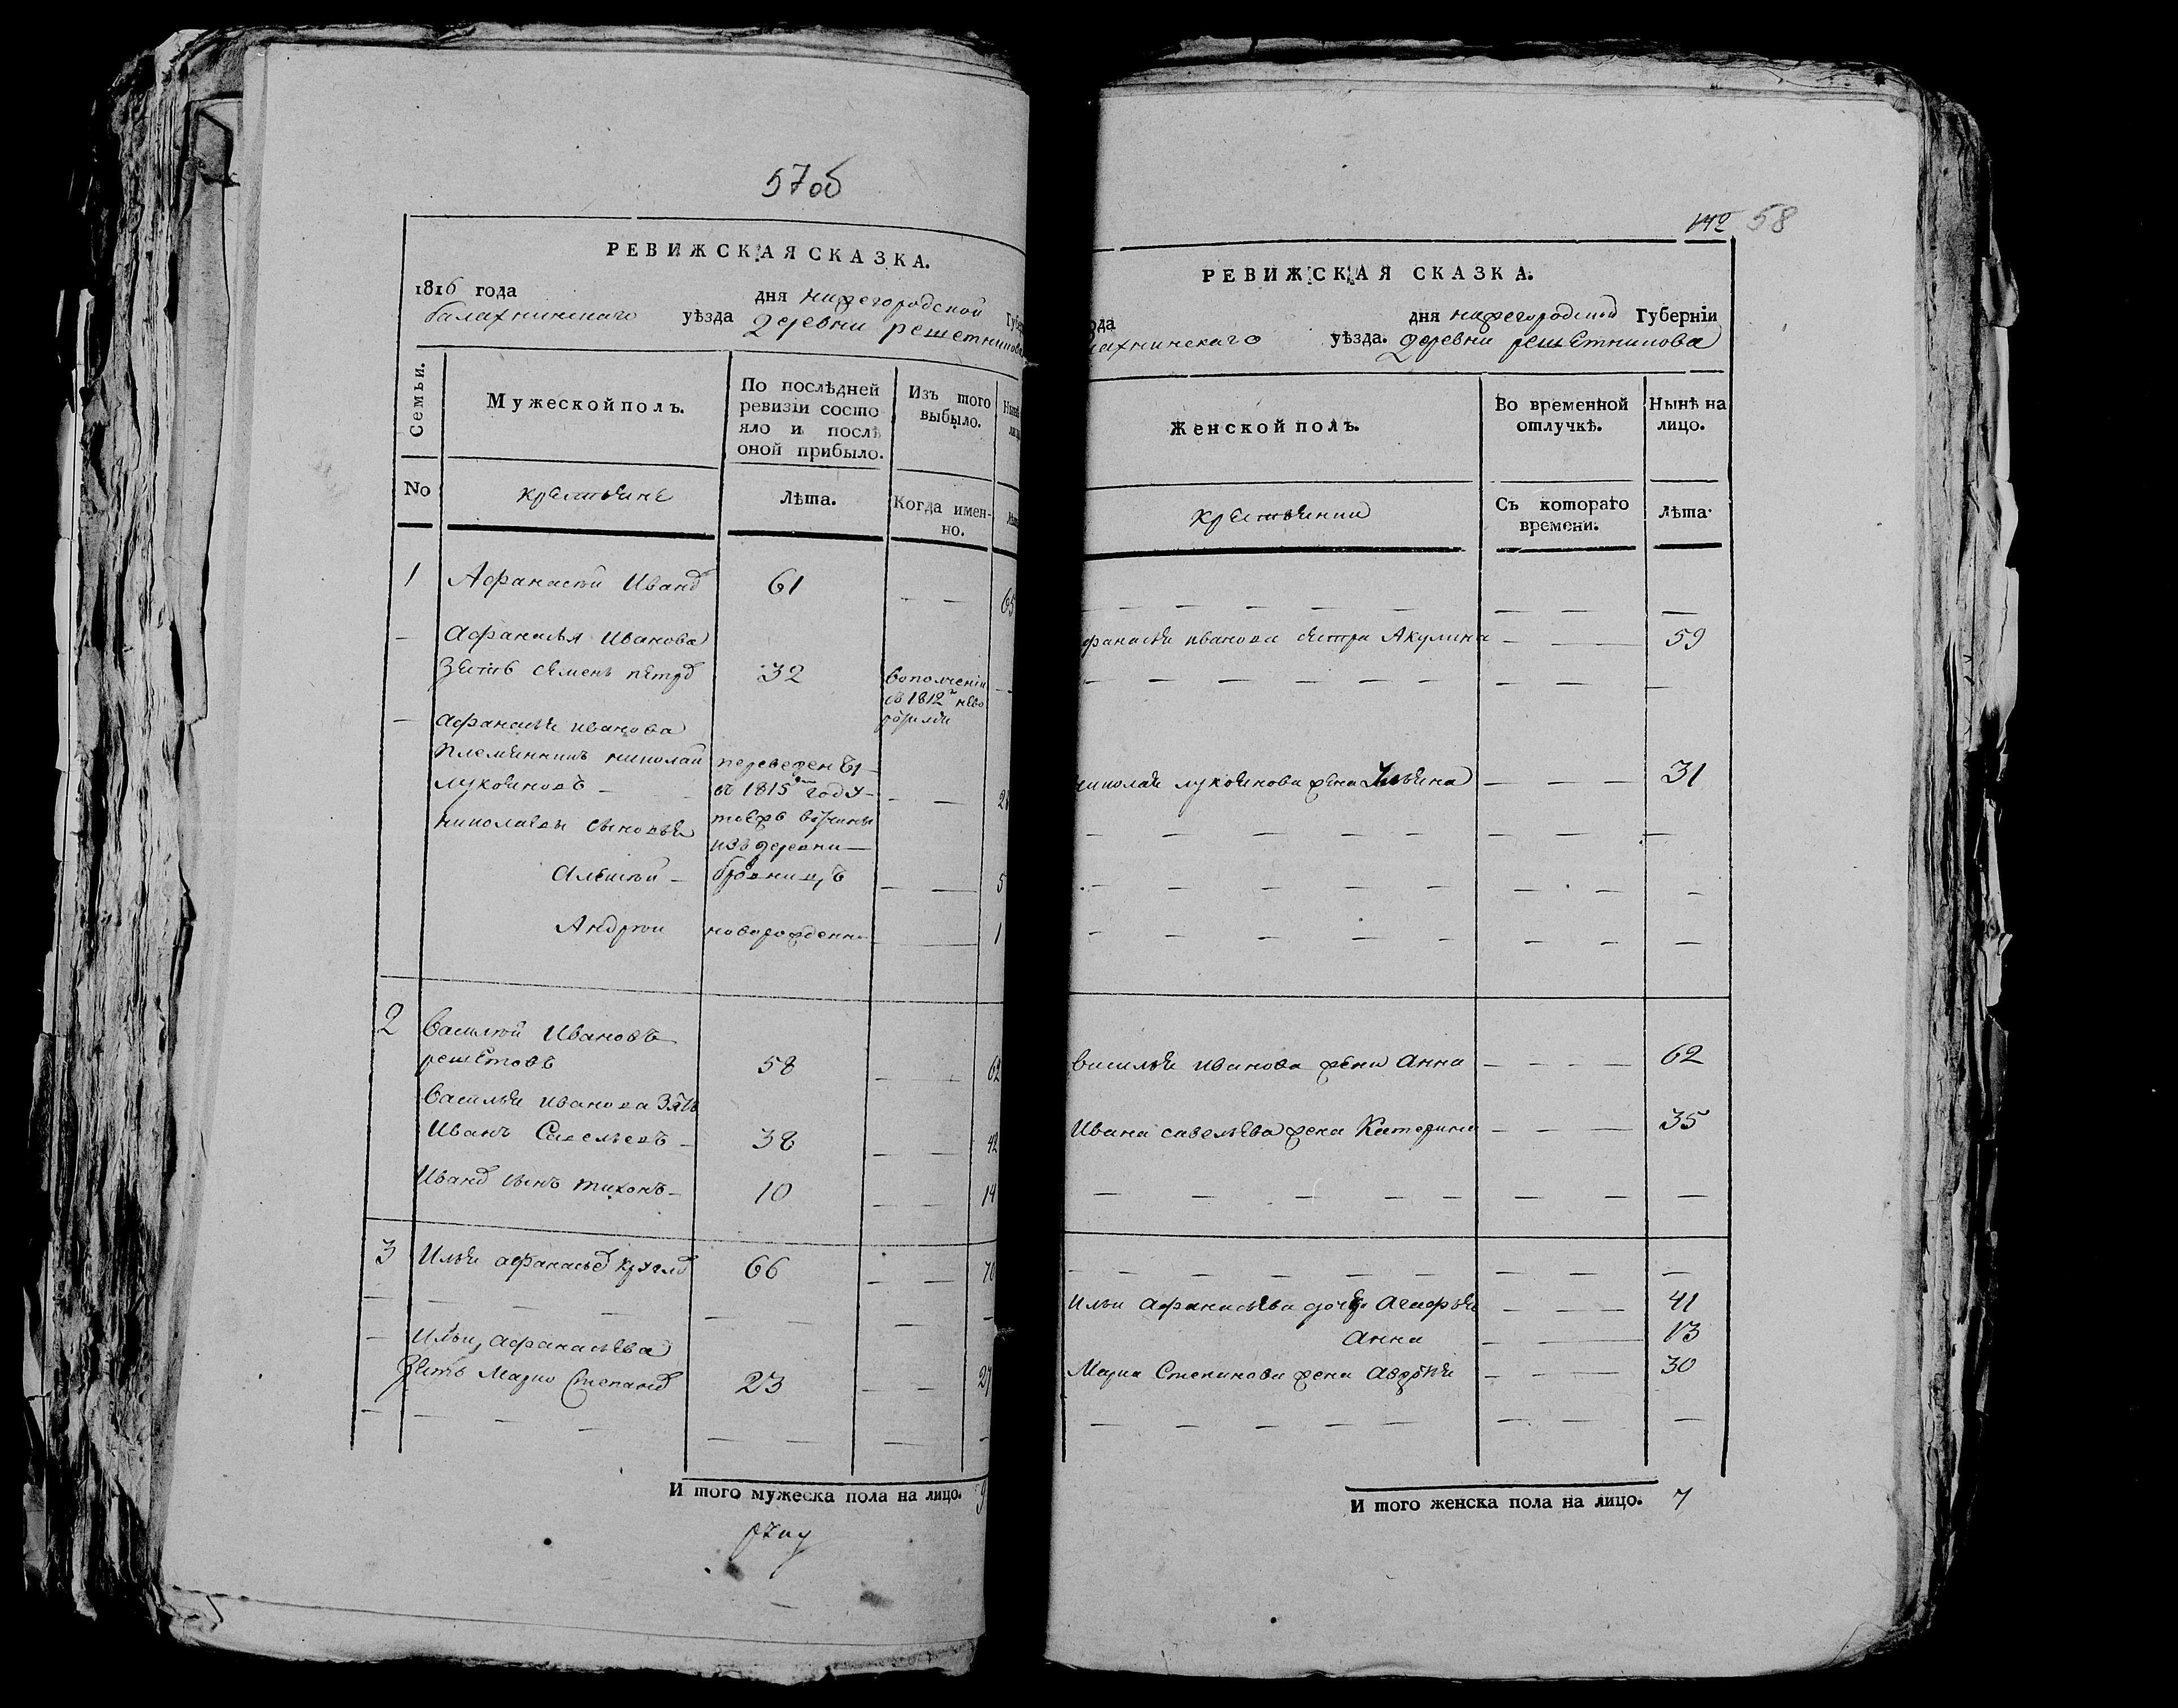 57об
РЕВИЖСКАЯ СКАЗКА.
1816 года дня нижегородской Губер
балахнинскаго уѣзда деревни решетникова
Семьи.
Мужеской полъ.
По послѣдней
ревизіи состо
яло и послѣ
оной прибыло.
Изъ того
выбыло.
No
крестьяне
Лѣта.
Когда имен-
но.
1 Афанасей Иванов 61 65
Афанасья Иванова
Зять семенъ петров 32 вополчении
въ 1812 г нево
Афанасья иванова
племянникъ николай переведены
лукояновъ въ 1815 м году
николаевы сыновья тоеже вотчины
изъ деревни
Алексей 5
Андреи новорожденны 1
2 Василей Ивановъ
решетовъ 58 62
Василья иванова Зять
Иванъ Савельевъ 38 42
Иванов сынъ тихонъ 10 14
3 Илья афанасьев 66 70
Ильи афанасьева
Зять Марко Степанов 23 27
И того мужеска пола на лицо. 9
58
РЕВИЖСКАЯ СКАЗКА.
ода дня нижегородской Губерніи
лахнинскаго уѣзда. деревни решетникова
Женской полъ.
Во временной
отлучкѣ.
Нынѣ на
лицо.
крестьянки
Съ котораго
времени.
Лѣта.
фанасья иванова сестра Акулина 59
николая лукоянова жена Ульяна 31
василья иванова жена Анна 62
Ивана савельева жена Катерина 35
Ильи Афанасьева дочь Агафья 41
Анна 13
Марка Степанова жена Авдотья 30
И того женска пола на лицо. 7